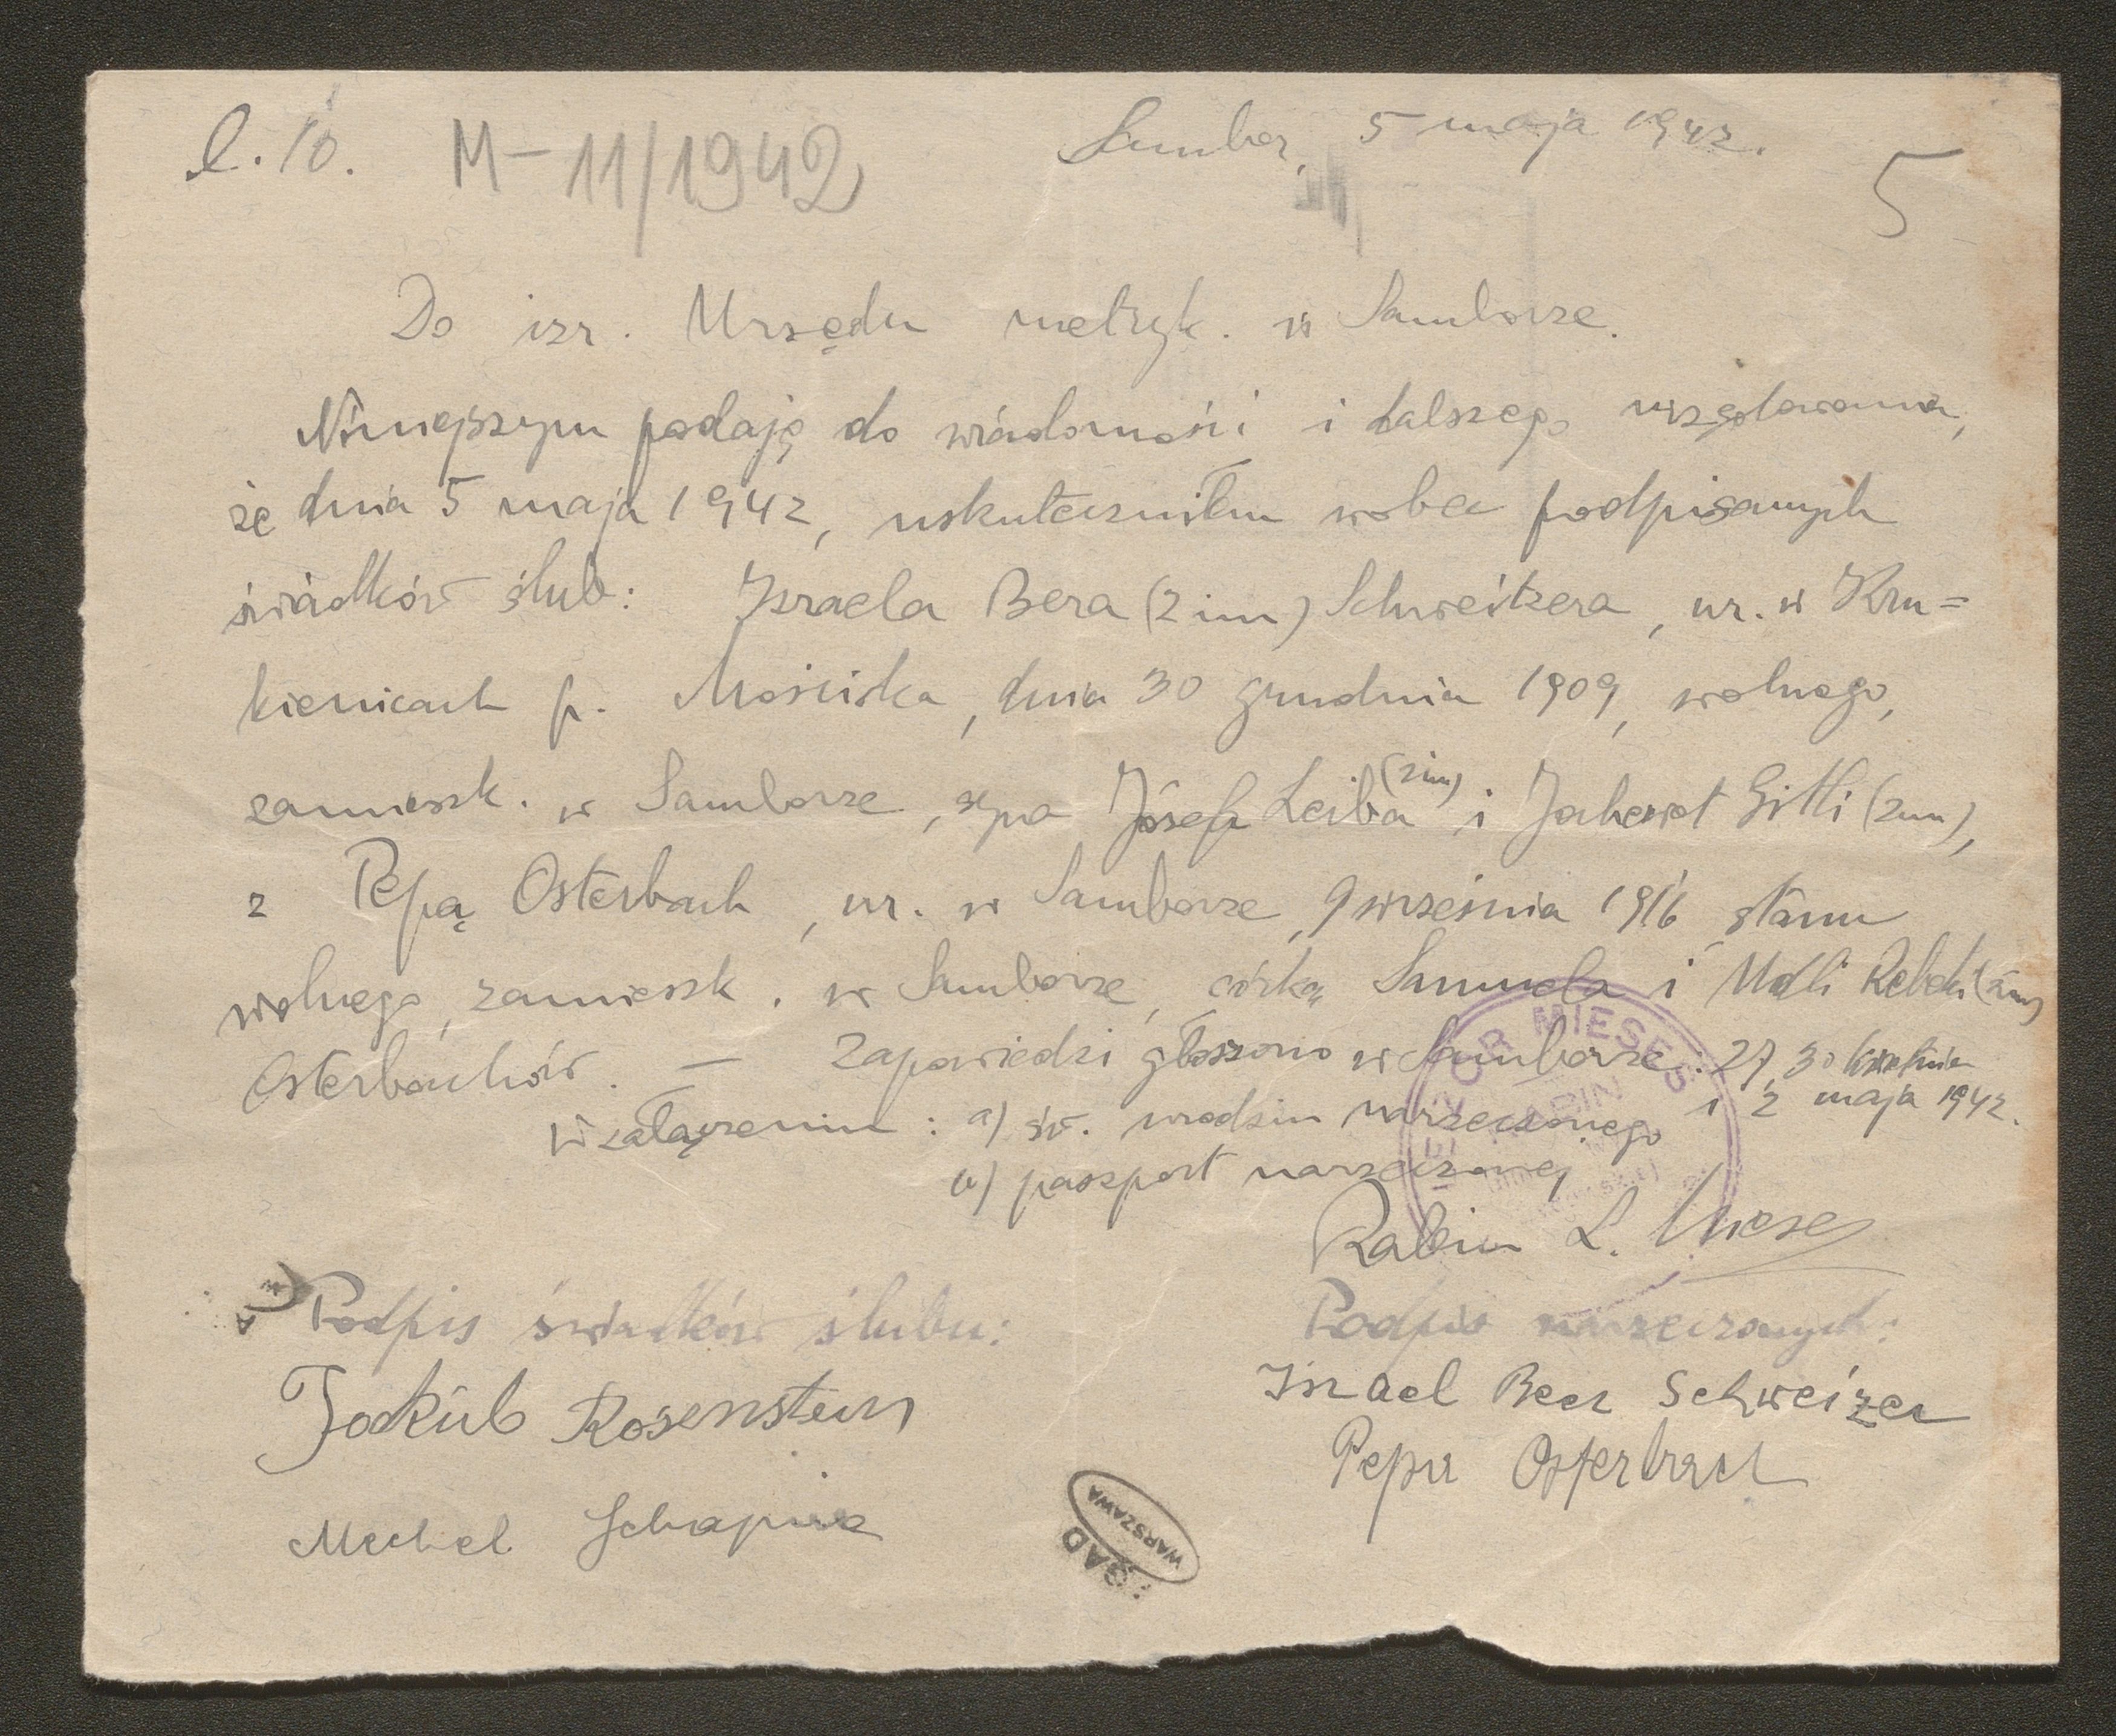 l. 10. M-11/1942 Sambor, 5 maja 1942.
5
Do izr. Urzędu metryk. w Samborze.
Niniejszym podaję do wiadomości i dalszego urzędowania,
że dnia 5 maja 1942, uskuteczniłem wobec podpisanych
świadków ślub: Izraela Bera (2 im) Schweitzera, ur. w Kru=
kienicach p. Mościska, dnia 30 grudnia 1909, wolnego,
zamieszk. w Samborze, syna Józefa Leiba (2 im) i Jochewet Gitli (2 im),
z Pepą Osterbach, ur. w Samborze, 9 września 1916 stanu
wolnego, zamieszk. w Samborze, córką Samuela i Madli Rebeki (2 im)
Osterbachów. — Zapowiedzi głoszono w Samborze: 27, 30 kwietnia
i 2 maja 1942.
W załączeniu: a) św. urodzin narzeczonego
b) paszport narzeczonej
MIESES
Rabin L. Mieses
Podpis świadków ślubu:
Podpis narzeczonych:
Jakub Rosenstein
Israel Beer Schweizer
Mechel Schapira
Pepa Osterbach
AGAD
WARSZAWA